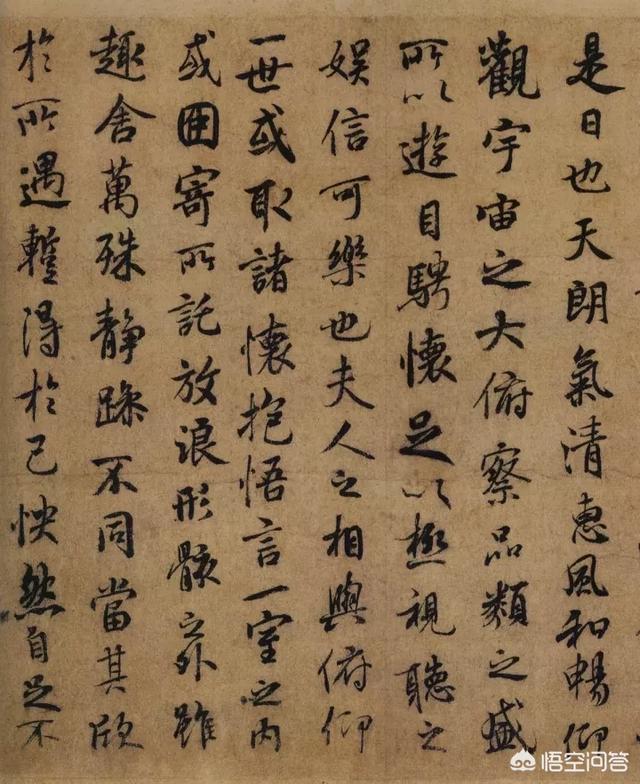 是日也天朗氣清惠風和暢仰
觀宇宙之大俯察品類之盛
所以遊目騁懷足以極視聽之
娛信可樂也夫人之相與俯仰
一世或取諸懷抱悟言一室之內
或因寄所託放浪形骸之外雖
趣舍萬殊靜躁不同當其欣
於所遇蹔得於己怏然自足不
悟空问答